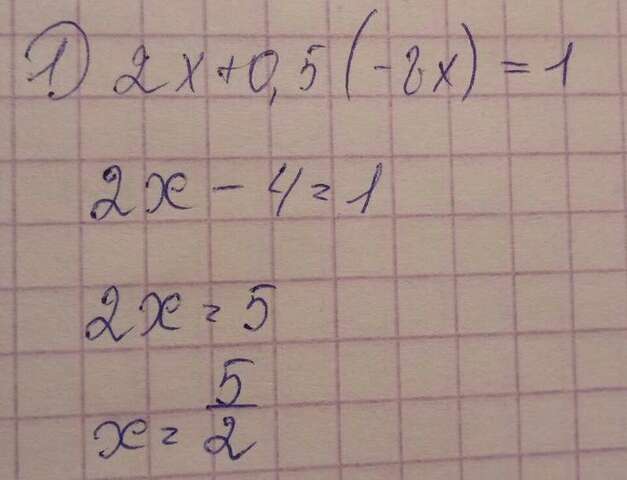 1) 2x+0,5(-8x)=1
2x-4=1
2x=5
x=5/2